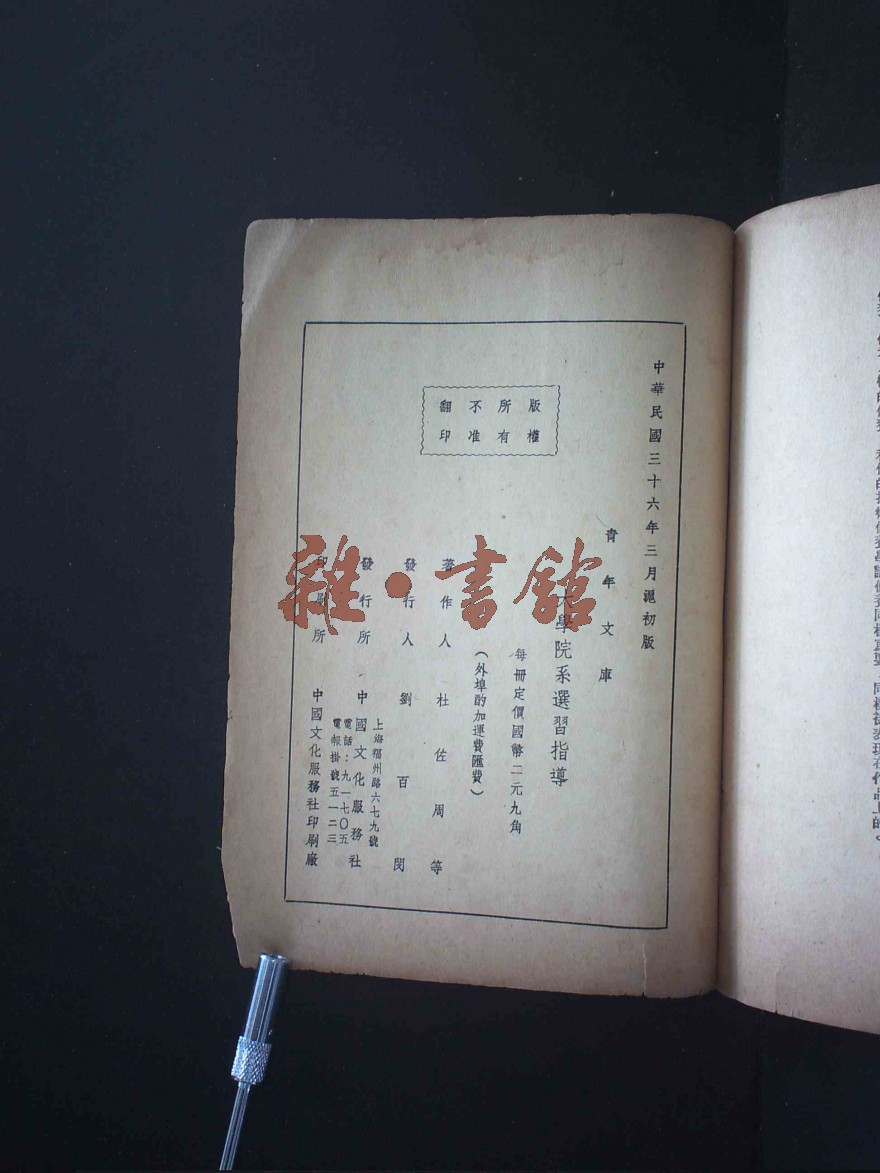 中華民國三十六年三月滬初版
版權所有
不准翻印
青年文庫
大學院系選習指導
每冊定價國幣二元九角
（外埠酌加運費匯費）
著作人 杜佐周等
發行人 劉百閔
發行所 中國文化服務社
上海福州路六七九號
電話：九一七〇五
電報掛號五一二三
印刷所 中國文化服務社印刷廠
雜·書館